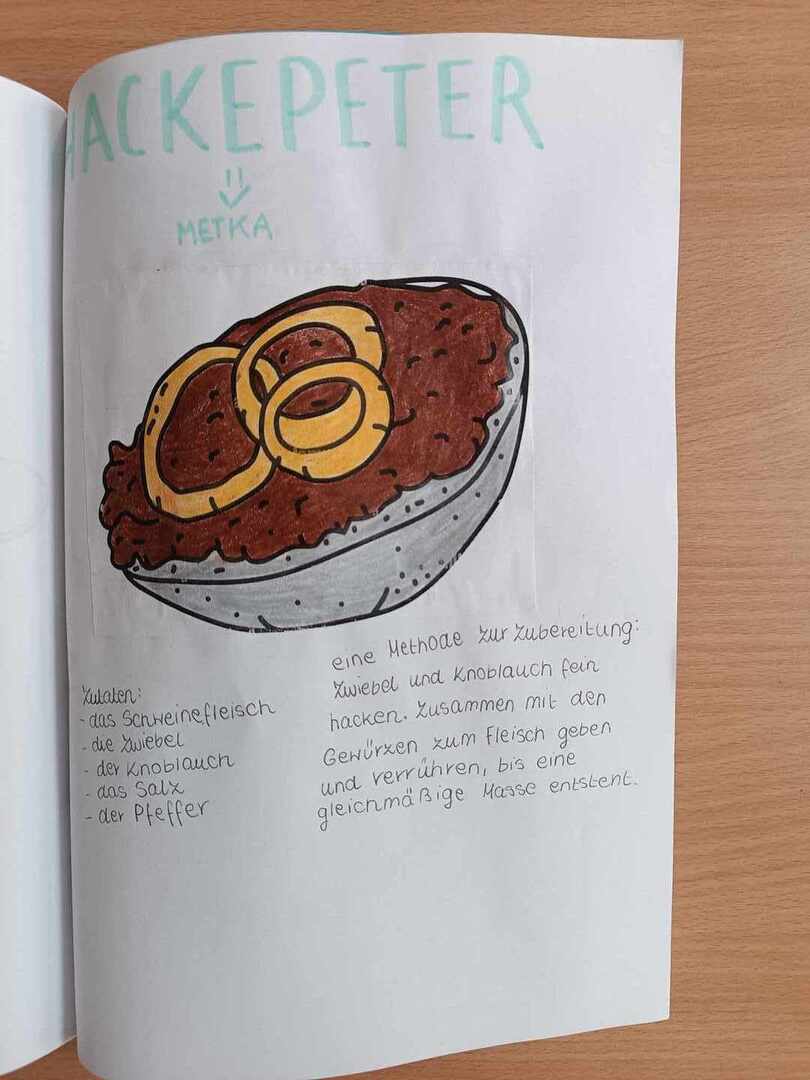 HACKEPETER
METKA
Zutaten:
- das Schweinefleisch
- die Zwiebel
- der Knoblauch
- das Salz
- der Pfeffer
eine Methode zur Zubereitung:
Zwiebel und Knoblauch fein
hacken. Zusammen mit den
Gewürzen zum Fleisch geben
und verrühren, bis eine
gleichmäßige Masse entsteht.